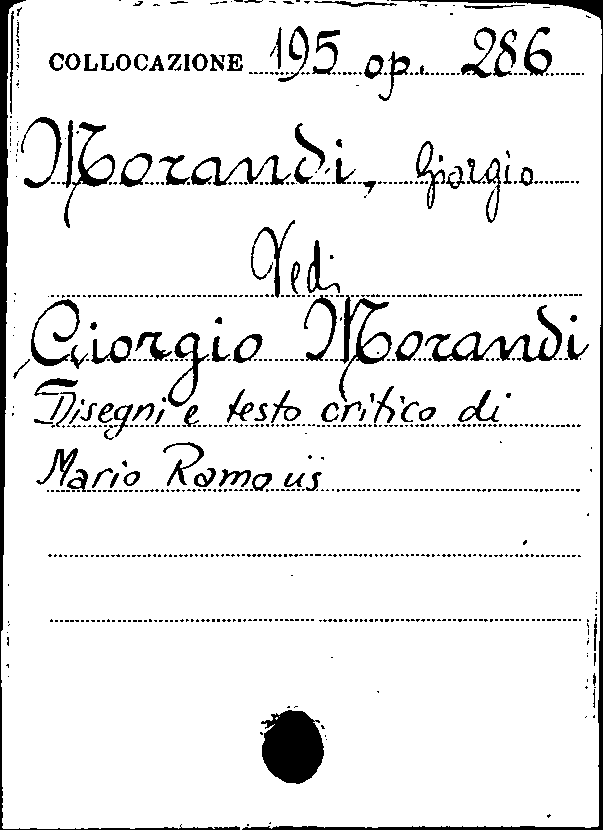 COLLOCAZIONE 195 op. 286
Morandi, Giorgio
Vedi
Giorgio Morandi
Disegni e testo critico di
Mario Ramoüs